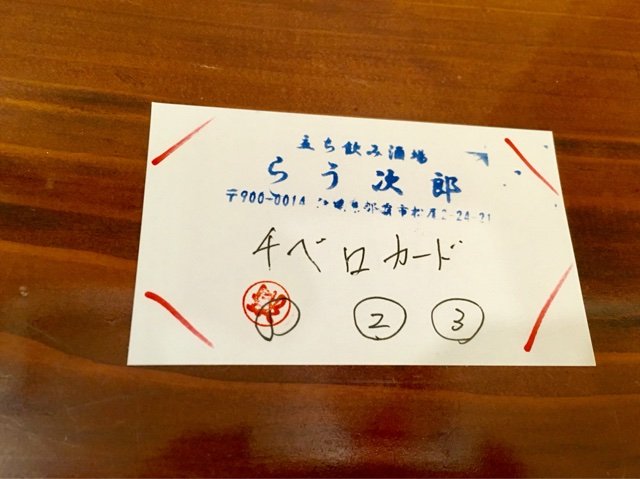 立ち飲み酒場
らう次郎
〒900-0014 沖縄県那覇市松尾2-24-21
千ベロカード
② ③